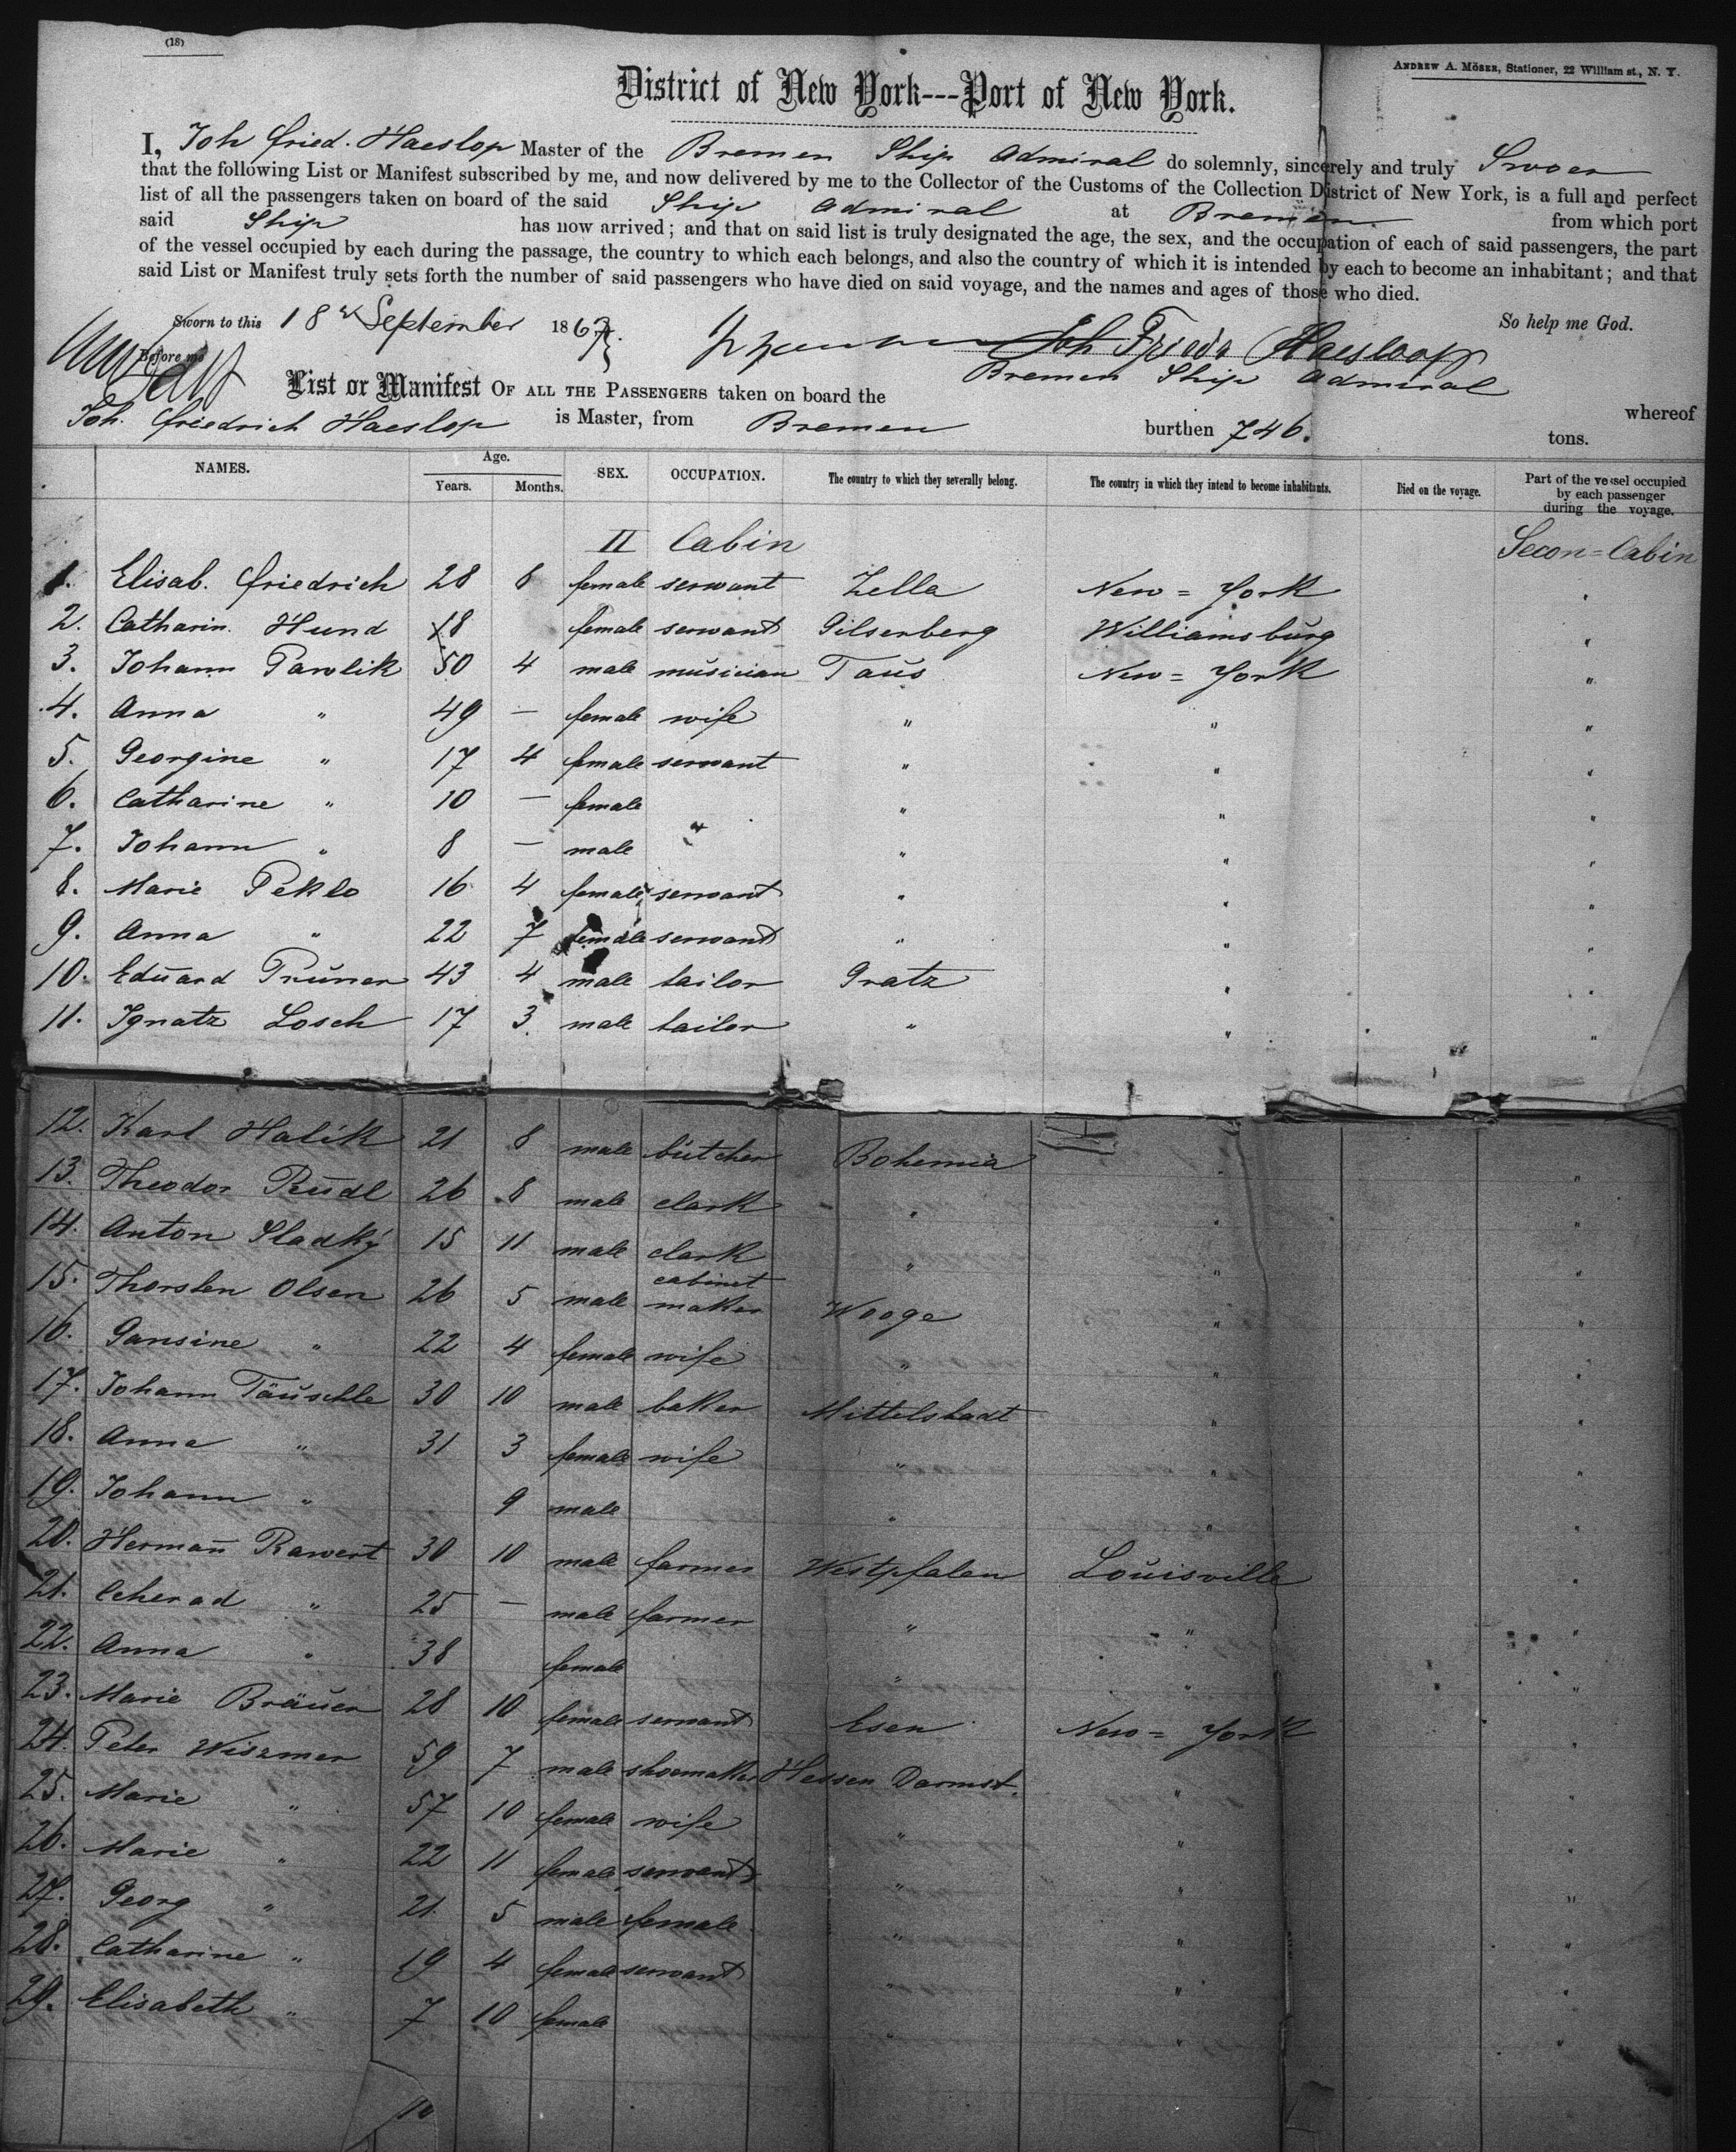 (18)
ANDREW A. MÖSER, Stationer, 22 William st., N. Y.
District of New York---Port of New York.
I, Joh Fried. Haeslop Master of the Bremen Ship Admiral do solemnly, sincerely and truly Swoer
that the following List or Manifest subscribed by me, and now delivered by me to the Collector of the Customs of the Collection District of New York, is a full and perfect
list of all the passengers taken on board of the said Ship Admiral at Bremen from which port
said Ship has now arrived; and that on said list is truly designated the age, the sex, and the occupation of each of said passengers, the part
of the vessel occupied by each during the passage, the country to which each belongs, and also the country of which it is intended by each to become an inhabitant; and that
said List or Manifest truly sets forth the number of said passengers who have died on said voyage, and the names and ages of those who died.
So help me God.
Sworn to this 18 September 1867.
Before me
Joh Friedr Haesloop
List or Manifest OF ALL THE PASSENGERS taken on board the Bremen Ship Admiral whereof
Joh. Friedrich Haeslop is Master, from Bremen burthen 746. tons.
NAMES. Age. Years. Months. SEX. OCCUPATION. The country to which they severally belong. The country in which they intend to become inhabitants. Died on the voyage. Part of the vessel occupied by each passenger during the voyage.
II Cabin Secon=Cabin
1. Elisab. Friedrich 28 8 female servant Zella New=York "
2. Catharin. Hund 18 female servant Gilserberg Williamsburg "
3. Johann Pawlik 50 4 male musician Taus New=York "
4. Anna " 49 — female wife " " "
5. Georgine " 17 4 female servant " " "
6. Catharine " 10 — female " " "
7. Johann " 8 — male " " " "
8. Marie Peklo 16 4 female servant " " "
9. Anna " 22 7 female servant " " "
10. Eduard Pruner 43 4 male tailor Gratz " "
11. Ignatz Losch 17 3 male tailor " " "
12. Karl Halik 21 8 male butcher Bohemia " "
13. Theodor Rudl 26 8 male clark " " "
14. Anton Sladký 15 11 male clark " " "
15. Thorsten Olsen 26 5 male cabinet maker Wooge " "
16. Gansine " 22 4 female wife " " "
17. Johann Täuschle 30 10 male baker Mittelstadt " "
18. Anna " 31 3 female wife " " "
19. Johann " 9 male " " "
20. Hermañ Rawert 30 10 male farmer Westpfalen Louisville "
21. Ceherad " 25 — male farmer " " "
22. Anna " 38 female " " "
23. Marie Bräuer 28 10 female servant Esen New=York "
24. Peter Wiszmer 59 7 male shoemaker Hessen Darmst. " "
25. Marie " 57 10 female wife " " "
26. Marie " 22 11 female servant " " "
27. Georg " 21 5 male female " " "
28. Catharine " 19 4 female servant " " "
29. Elisabeth " 7 10 female " " "
10